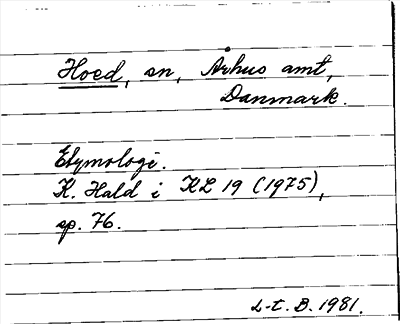 Hoed, sn, Århus amt,
Danmark.
Etymologi.
K. Hald i KL 19 (1975),
sp. 76.
L-t. B. 1981.